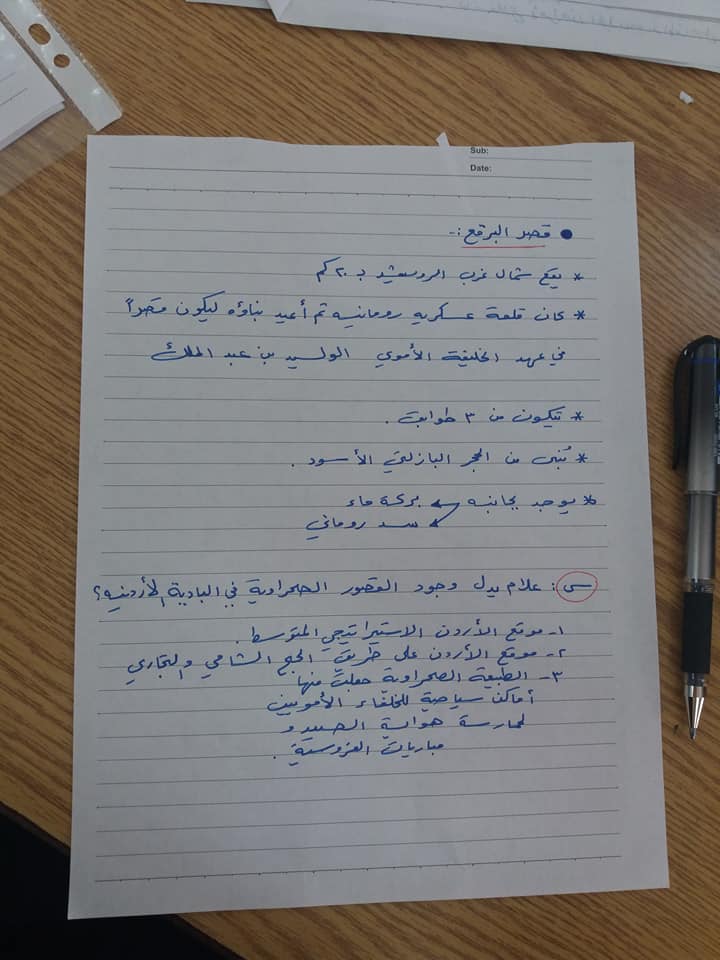 Sub:
Date:
● قصر البرقع :-
* يقع شمال غرب الرويشد بـ ٢٠ كم
* كان قلعة عسكريه رومانيه تم أعيد بناؤه ليكون قصراً
في عهد الخليفة الأموي الوليد بن عبد الملك
* تتكون من ٣ طوابق .
* بُنى من الحجر البازلتي الأسود .
* يوجد بجانبه بركة ماء
سد روماني
س : علام يدل وجود القصور الصحراوية في البادية الأردنيه ؟
١- موقع الأردن الاستيراتيجي المتوسط .
٢- موقع الأردن على طريق الحج الشامي والتجاري
٣- الطبيعة الصحراوية جعلت منها
أماكن سياحية للخلفاء الأمويين
لممارسة هواية الصيد و
مباريات الفروسية .